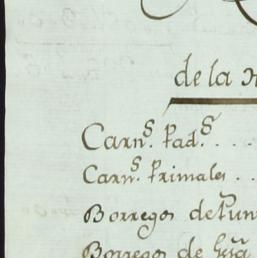 de la
Carn.ˢ Pad.ˢ . . .
Carn.ˢ Primales . .
Borregos de Pun
Borregos de